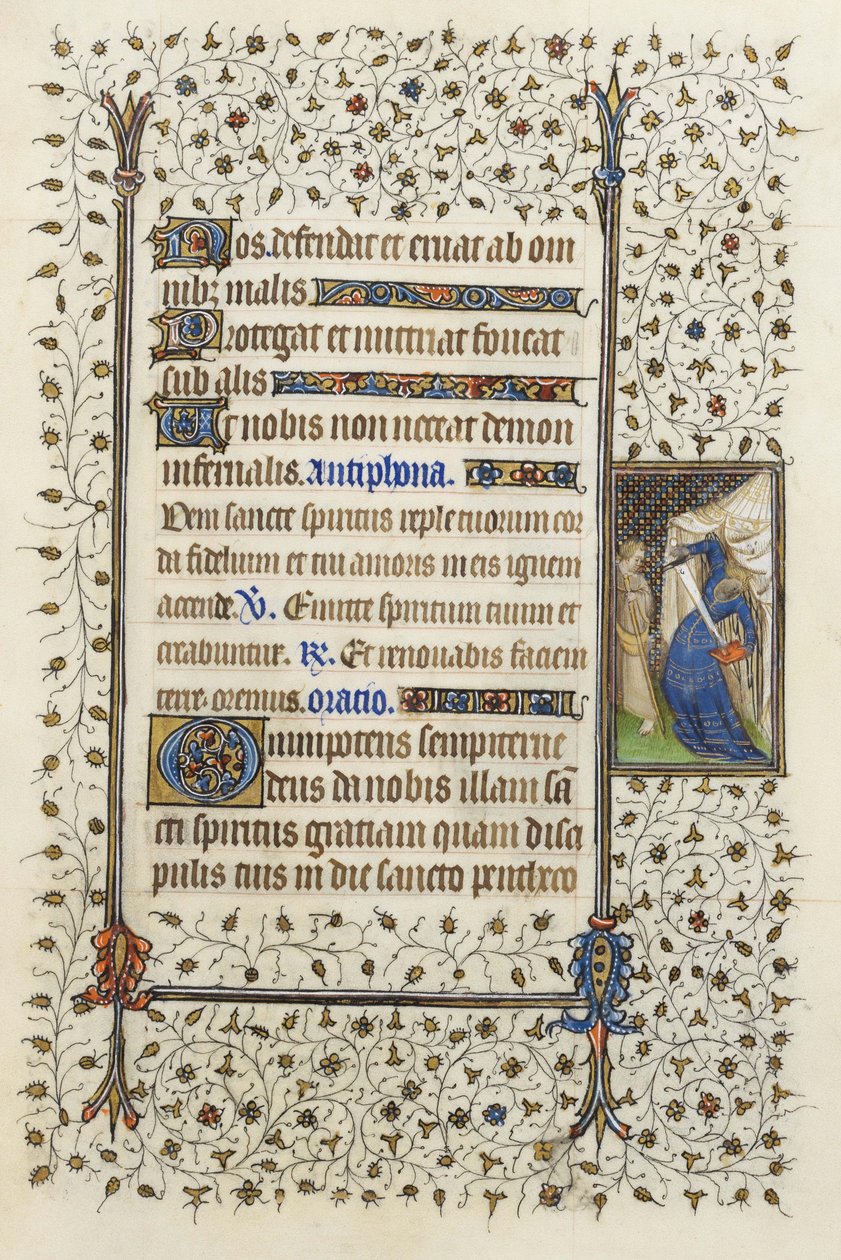 Nos defendat et eruat ab om
nibꝫ malis
Protegat et nuttriat foueat
sub alis
Ut nobis non noceat demon
infernalis. Antiphona.
Veni sancte spiritus reple tuorum cor
da fidelium et tui amoris in eis ignem
accende. ℣. Emitte spiritum tuum et
creabuntur. ℟. Et renouabis faciem
terre. oremus. oratio.
Omnipotens sempiterne
deus da nobis illam sā
cti spiritus gratiam quam disci
pulis tuis in die sancto pentheco